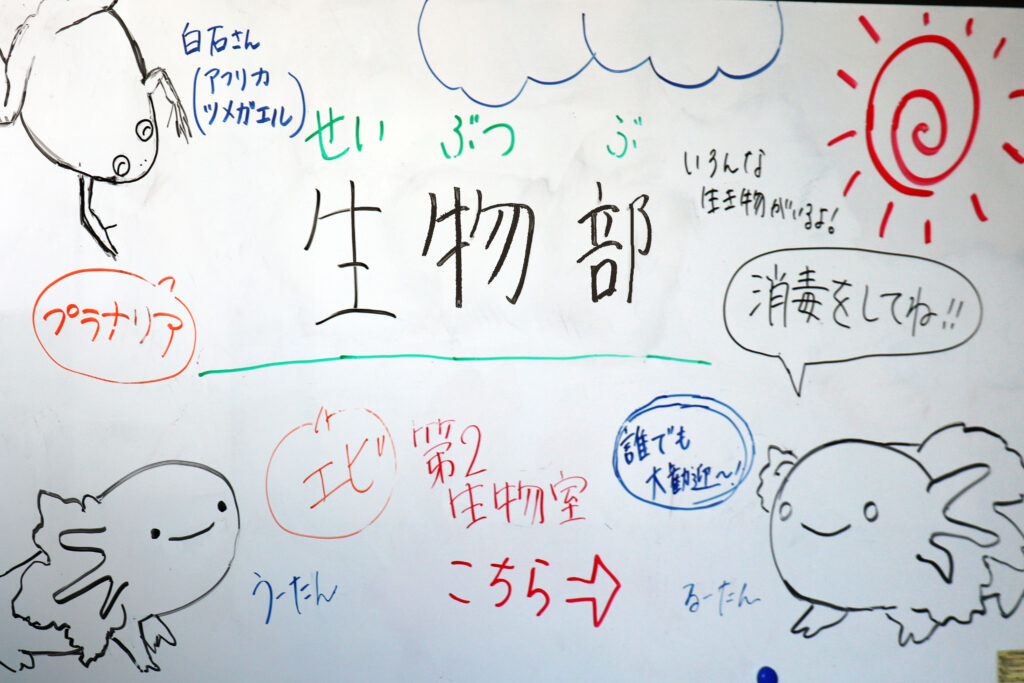 白石さん
(アフリカ
ツメガエル)
せい ぶつ ぶ
生物部
いろんな
生き物がいるよ!
消毒をしてね!!
プラナリア
エビ
第2
生物室
こちら⇒
誰でも
大歓迎〜!
うーたん
るーたん